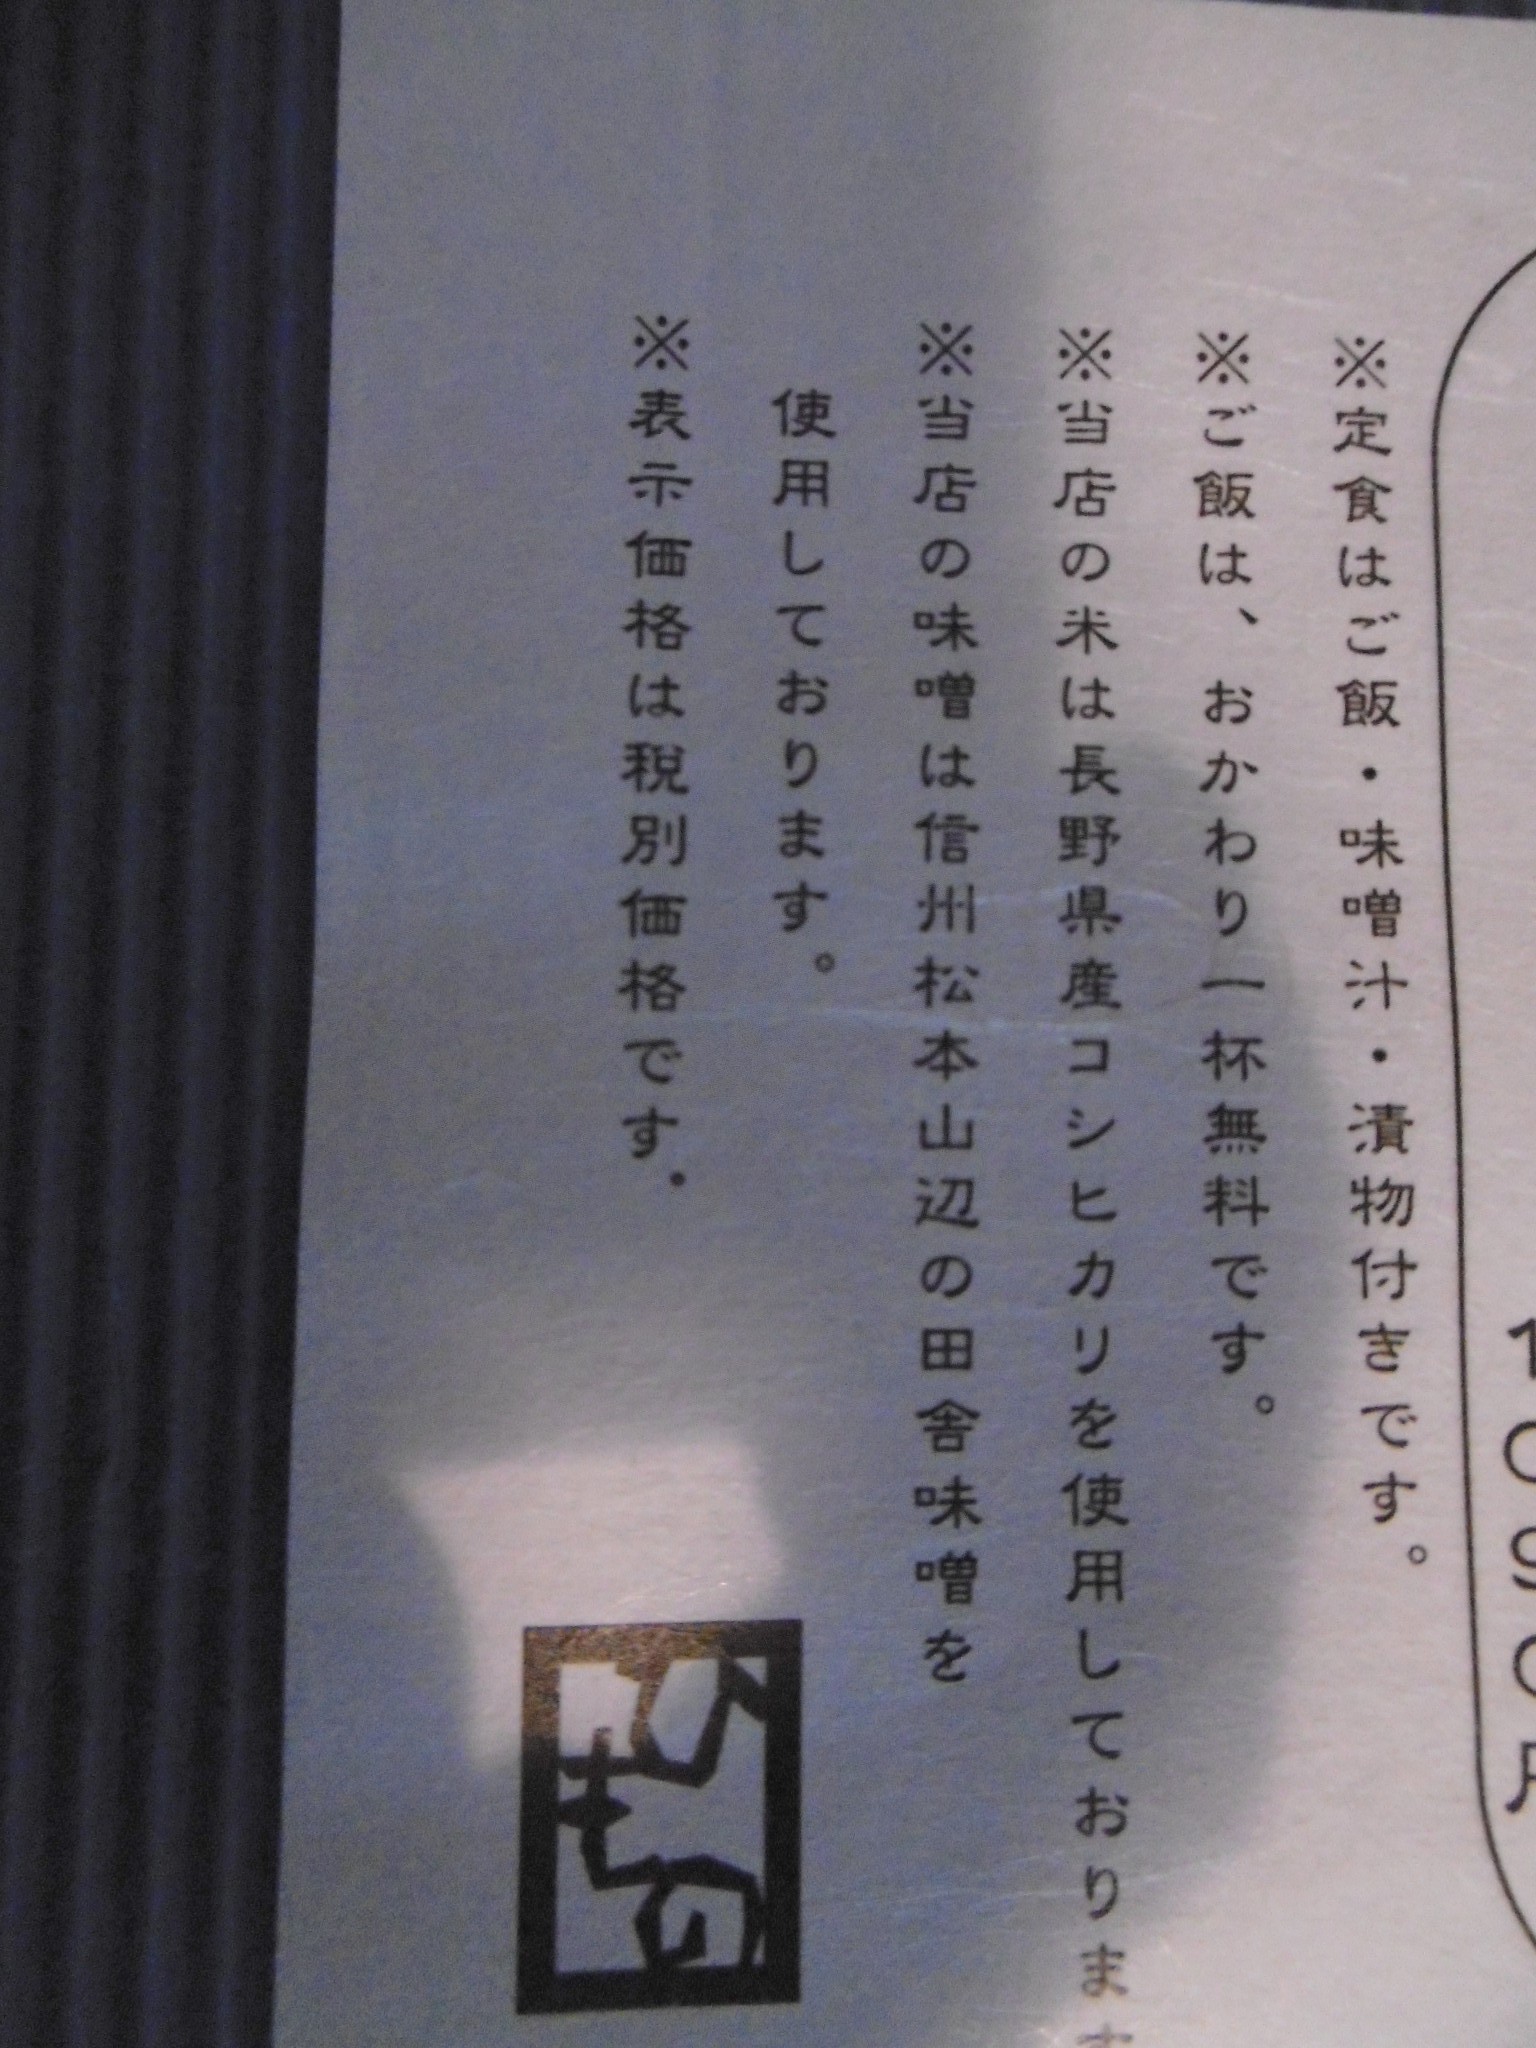 ※定食はご飯・味噌汁・漬物付きです。
※ご飯は、おかわり一杯無料です。
※当店の米は長野県産コシヒカリを使用しております
※当店の味噌は信州松本山辺の田舎味噌を
使用しております。
※表示価格は税別価格です.